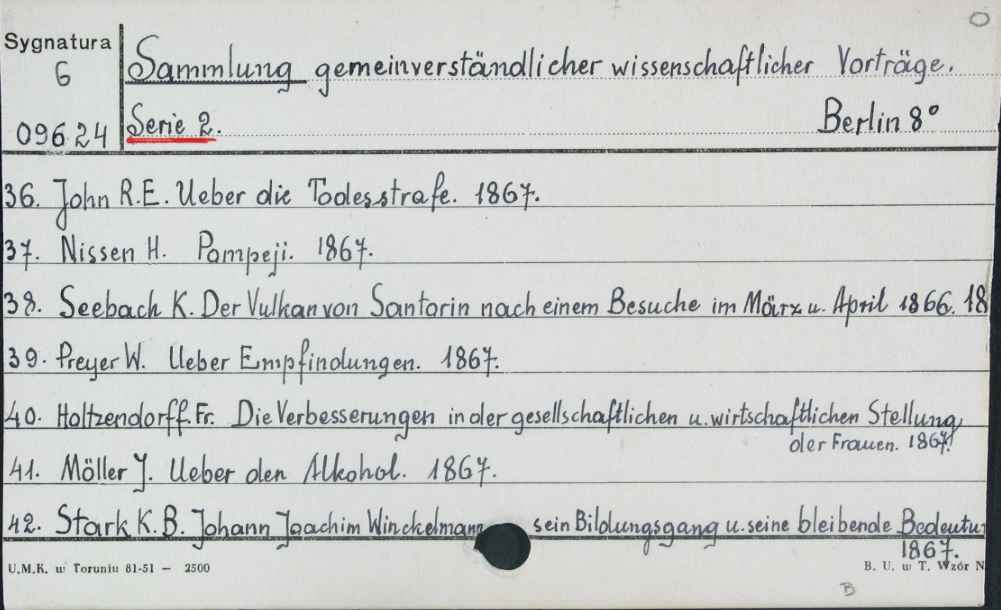 O
Sygnatura
6
Sammlung gemeinverständlicher wissenschaftlicher Vorträge.
09624
Serie 2.
Berlin 8°
36. John R.E. Ueber die Todesstrafe. 1867.
37. Nissen H. Pompeji. 1867.
38. Seebach K. Der Vulkan von Santorin nach einem Besuche im März u. April 1866. 18
39. Preyer W. Ueber Empfindungen. 1867.
40. Holtzendorff. Fr. Die Verbesserungen in der gesellschaftlichen u. wirtschaftlichen Stellung
der Frauen. 1867.
41. Möller J. Ueber den Alkohol. 1867.
42. Stark K.B. Johann Joachim Winckelmann sein Bildungsgang u. seine bleibende Bedeutu
1867.
U.M.K. w Toruniu 81-51 — 2500
B. U. w T. Wzór N
B